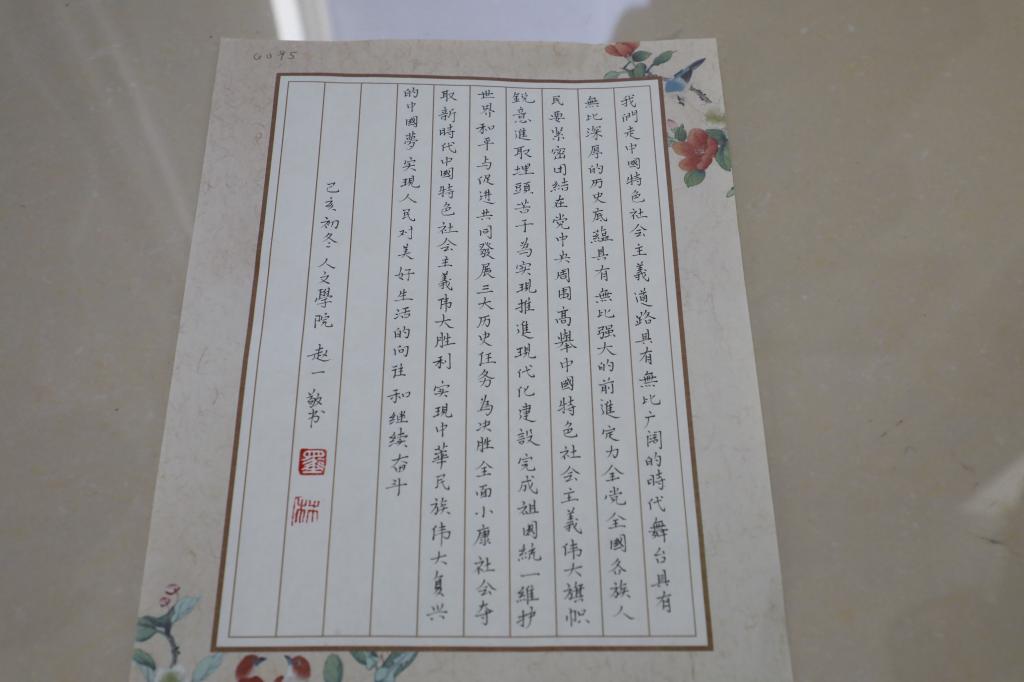 0095
我們走中國特色社会主義道路具有無比广阔的時代舞台具有
無比深厚的历史底蕴具有無比强大的前進定力全党全國各族人
民要紧密团結在党中央周围高舉中國特色社会主義伟大旗帜
鋭意進取埋頭苦干為实現推進現代化建設完成祖国統一維护
世界和平与促进共同發展三大历史任务為决胜全面小康社会夺
取新時代中國特色社会主義伟大胜利实現中華民族伟大复兴
的中國夢实現人民对美好生活的向往和继续奋斗
己亥初冬人文學院 赵一敬书